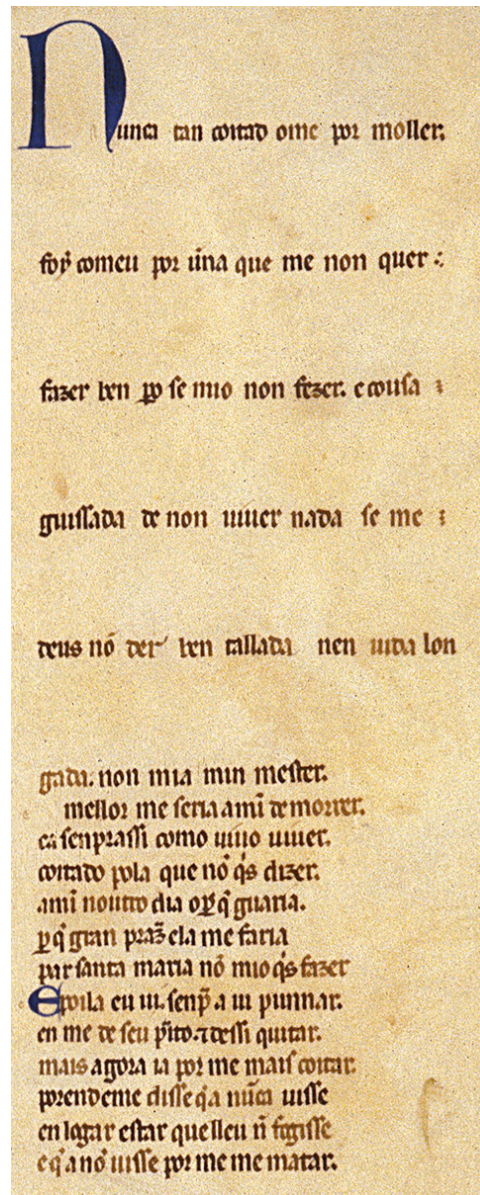 Nunca tan coitado ome por moller.
foy comeu por ũna que me non quer :
fazer ben p̱o se mio non fezer. e cousa :
guissada de non uiuer nada se me :
deus nõ der ben tallada nen uida lon
gada. non mia min mester.
mellor me seria amĩ de morrer.
ca senprassi como uiuo uiuer.
coitado pola que nõ q̇s dizer.
amĩ noutro dia op̱ q̇ guaria.
p̱ q̇ gran praz̃ ela me faria
par santa maria nõ mio q̇s fazer
E poila eu ui. senp̃ a ui punnar.
en me de seu p̃ito. ⁊ dessi quitar.
mais agora ia por me mais coitar.
porendeme disse q̇a nũca uisse
en logar estar que lleu ñ fogisse
e q̇a nõ uisse por me me matar.